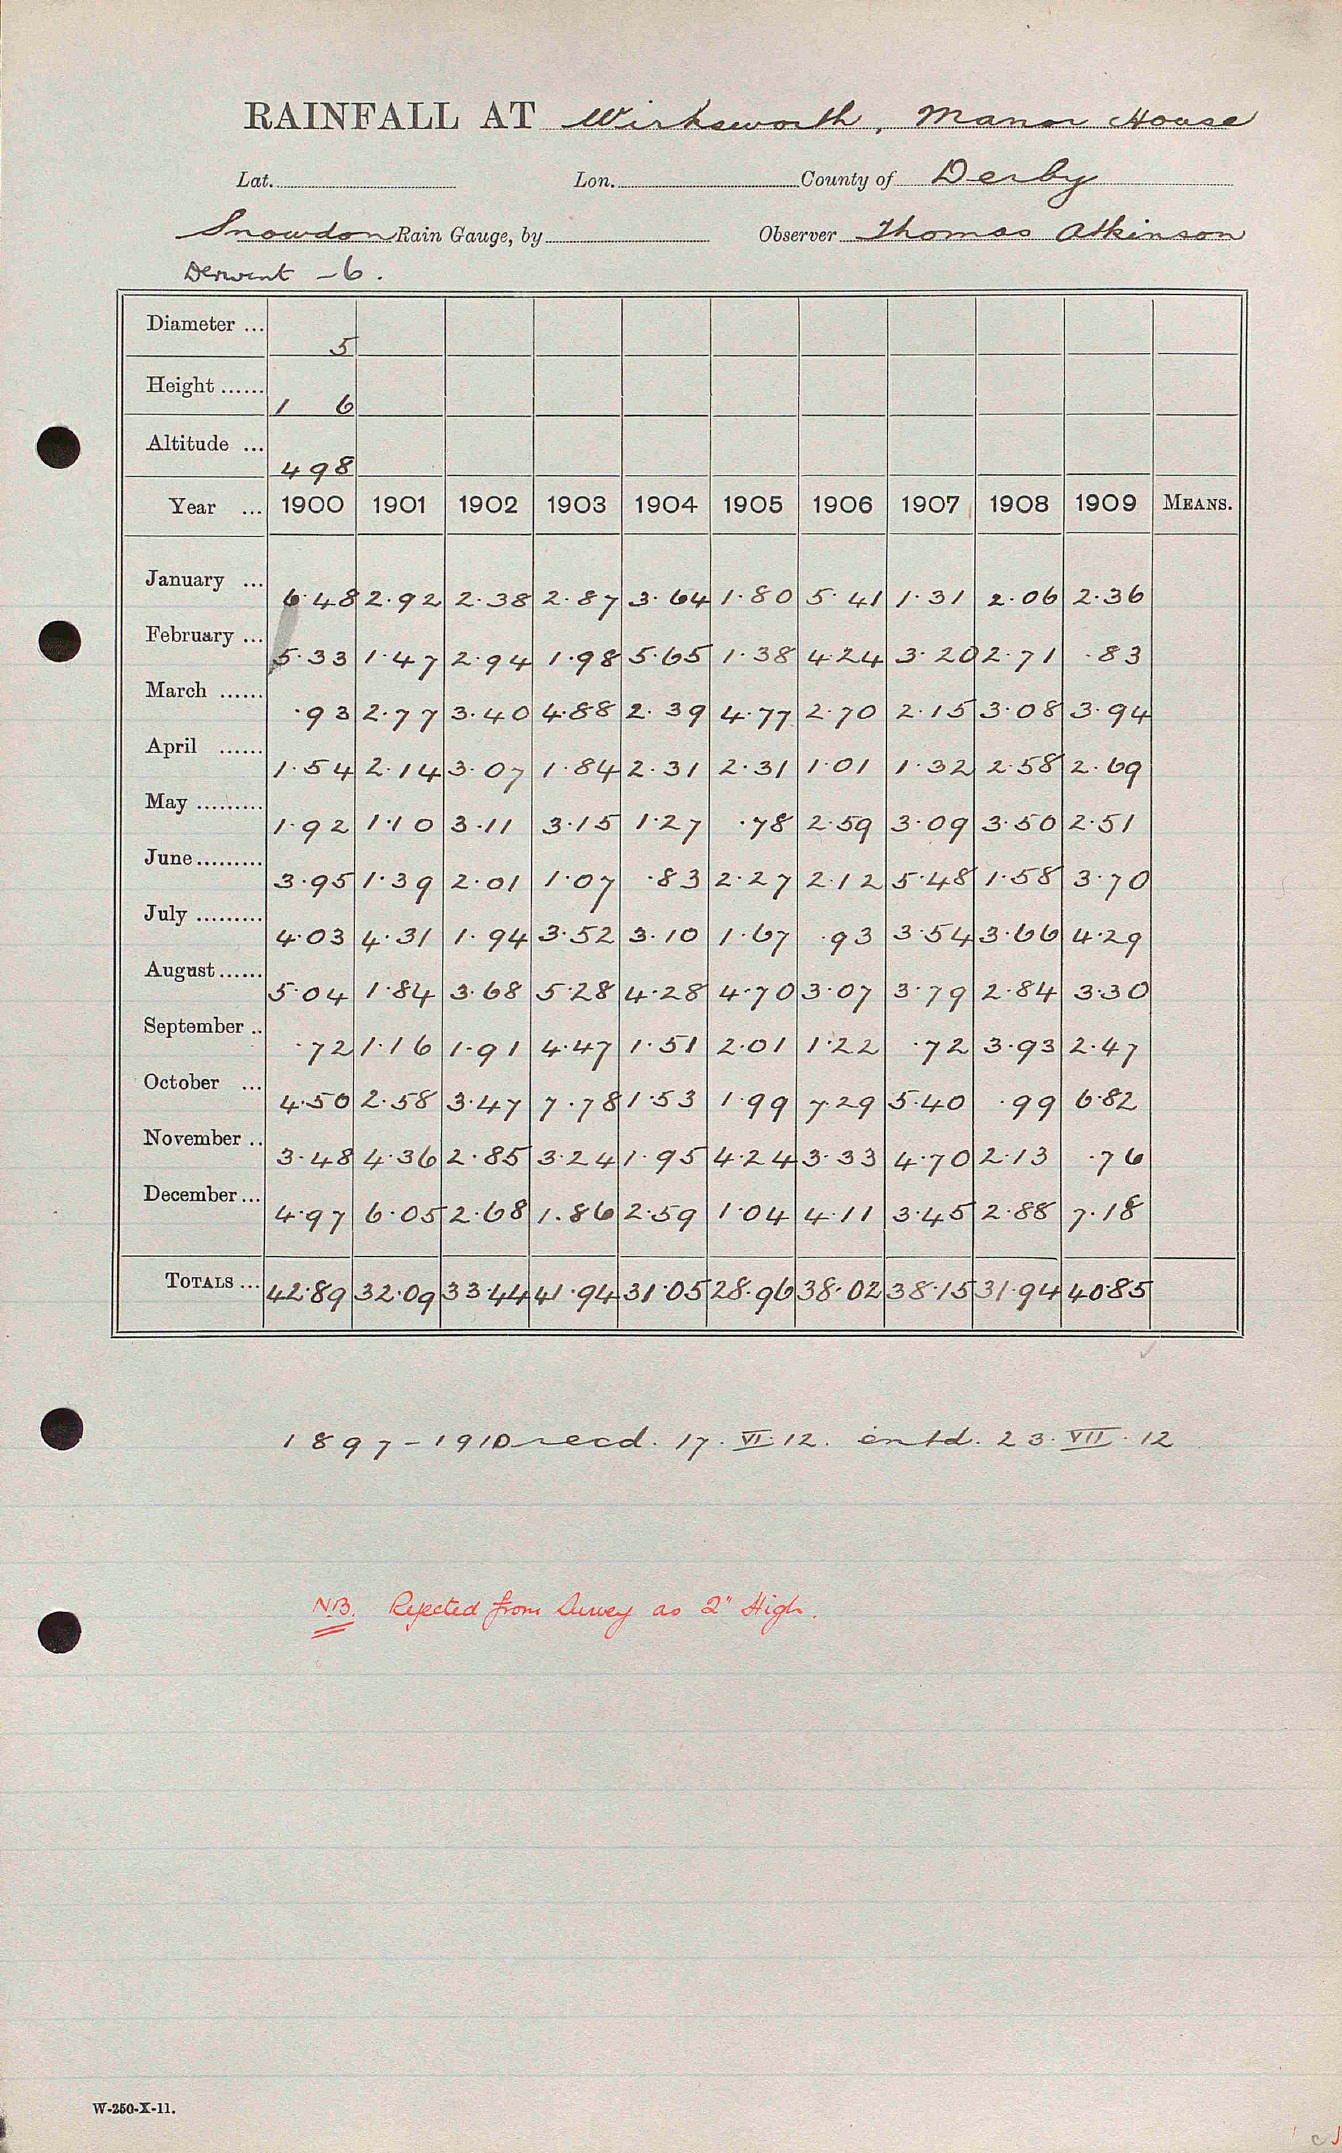 RAINFALL AT Wirksworth, Manor House
Lat. Lon. County of Derby
Snowdon Rain Gauge, by Observer Thomas Atkinson
Derwent – 6.
Diameter ... 5
Height ...... 1 6
Altitude ... 498
Year ... 1900 1901 1902 1903 1904 1905 1906 1907 1908 1909 MEANS.
January ... 6·48 2·92 2·38 2·87 3·64 1·80 5·41 1·31 2·06 2·36
February ... 5·33 1·47 2·94 1·98 5·65 1·38 4·24 3·20 2·71 ·83
March ...... ·93 2·77 3·40 4·88 2·39 4·77 2·70 2·15 3·08 3·94
April ...... 1·54 2·14 3·07 1·84 2·31 2·31 1·01 1·32 2·58 2·69
May ......... 1·92 1·10 3·11 3·15 1·27 ·78 2·59 3·09 3·50 2·51
June ......... 3·95 1·39 2·01 1·07 ·83 2·27 2·12 5·48 1·58 3·70
July ......... 4·03 4·31 1·94 3·52 3·10 1·67 ·93 3·54 3·66 4·29
August ...... 5·04 1·84 3·68 5·28 4·28 4·70 3·07 3·79 2·84 3·30
September .. ·72 1·16 1·91 4·47 1·51 2·01 1·22 ·72 3·93 2·47
October ... 4·50 2·58 3·47 7·78 1·53 1·99 7·29 5·40 ·99 6·82
November .. 3·48 4·36 2·85 3·24 1·95 4·24 3·33 4·70 2·13 ·76
December ... 4·97 6·05 2·68 1·86 2·59 1·04 4·11 3·45 2·88 7·18
TOTALS ... 42·89 32·09 33·44 41·94 31·05 28·96 38·02 38·15 31·94 40·85
1897–1910 recd. 17.VI.12. entd. 23.VII.12
NB. Rejected from Survey as 2" High.
W-250-X-11.